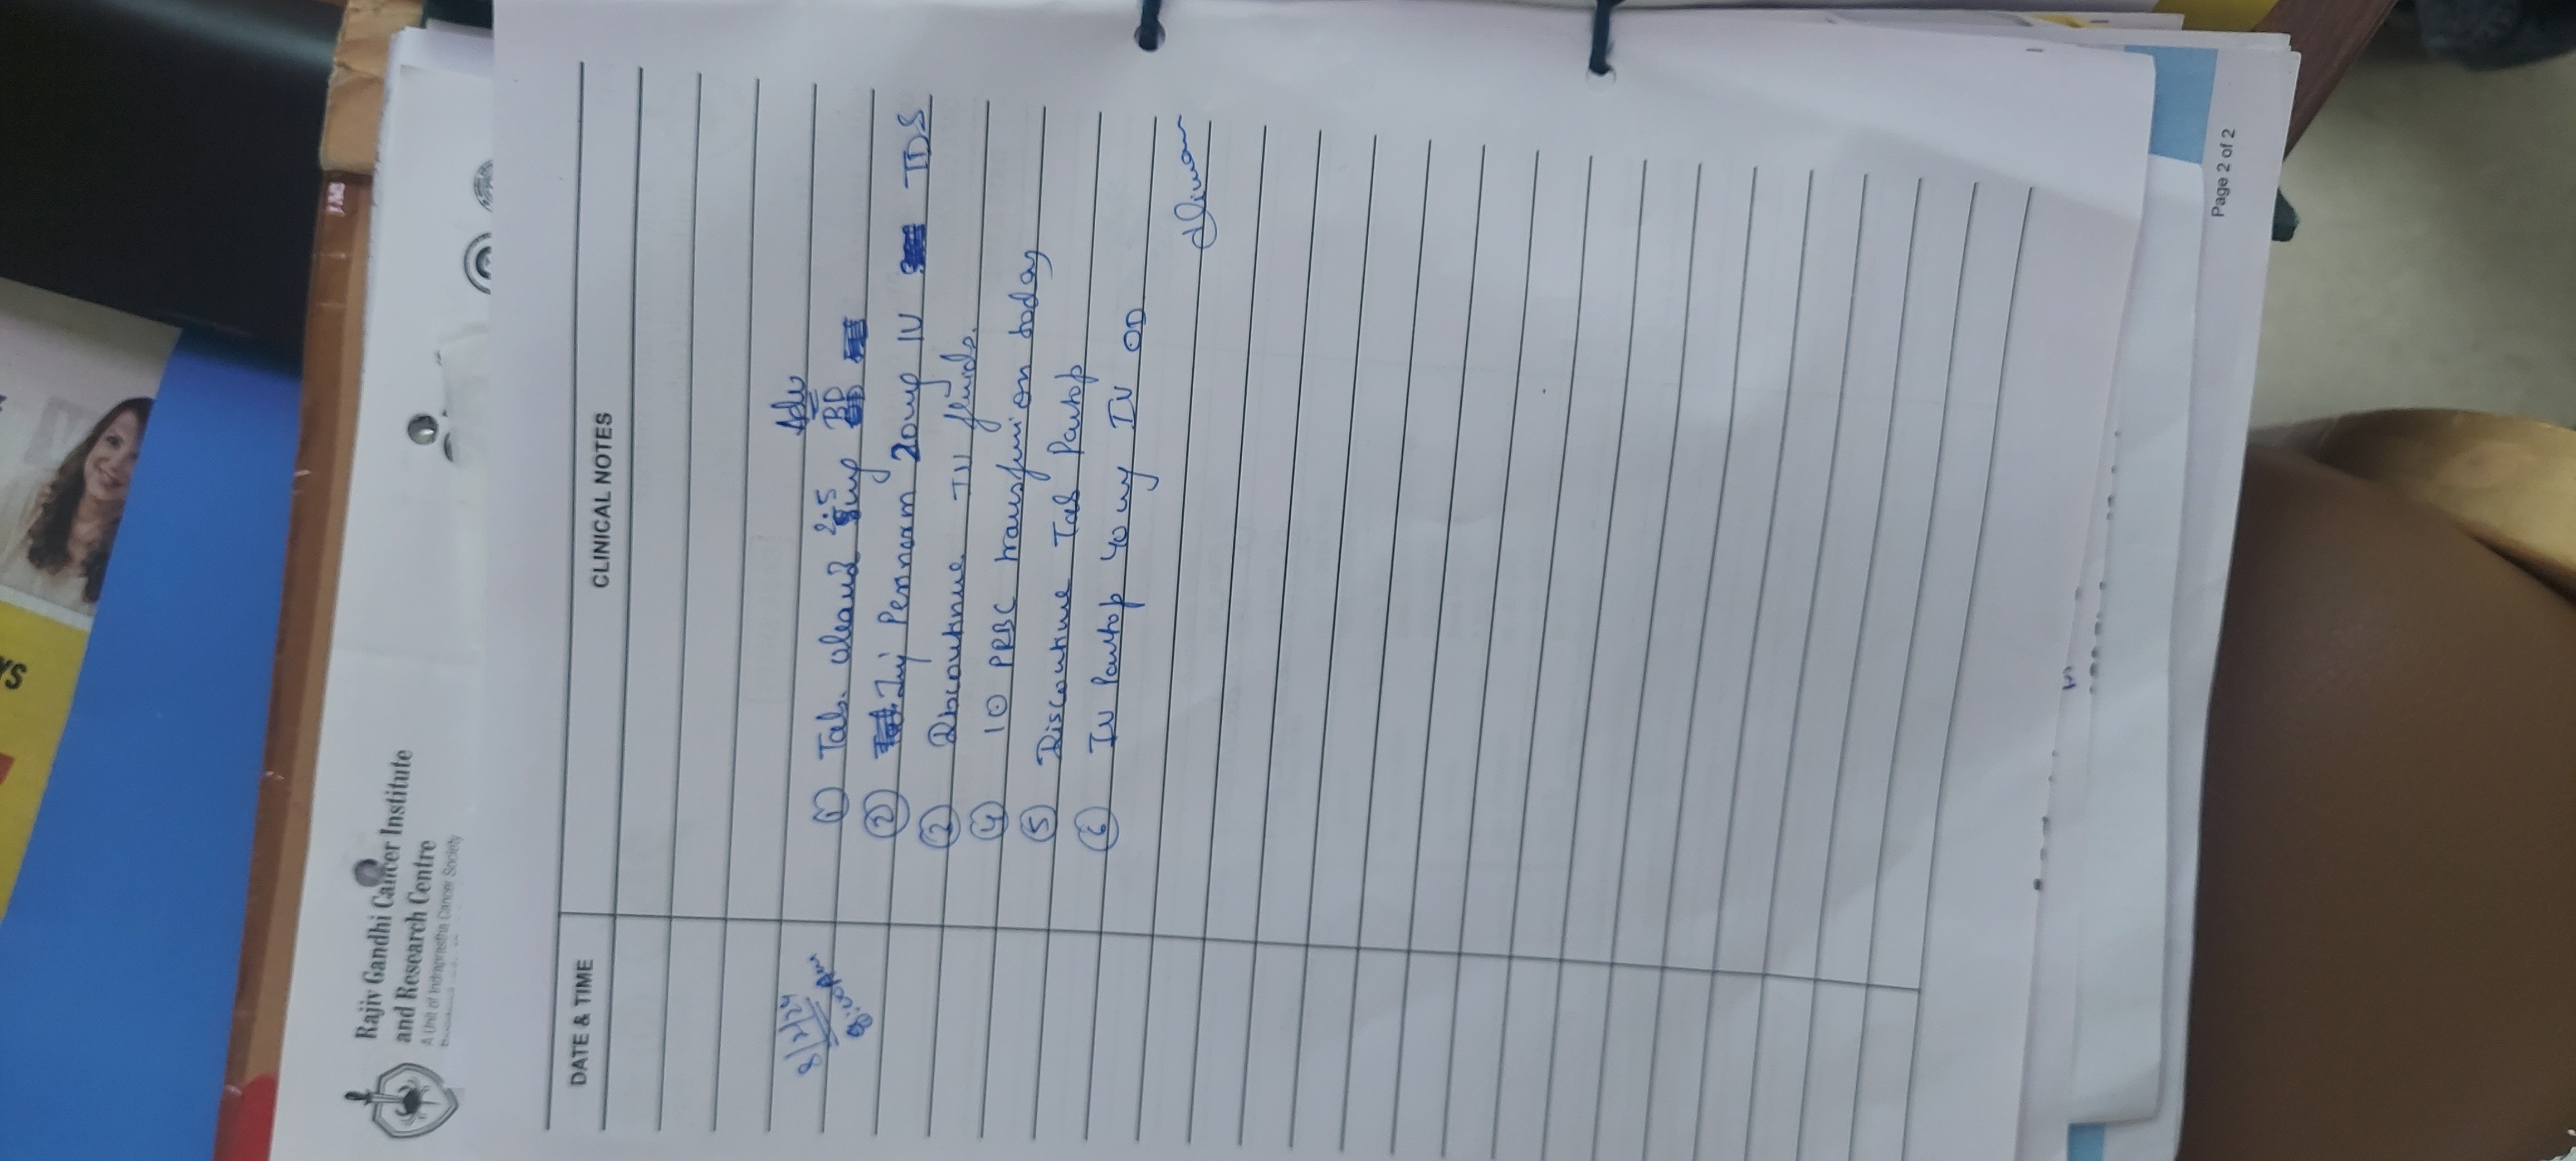 Rajiv Gandhi Cancer Institute
and Research Centre
A Unit of Indraprastha Cancer Society
DATE & TIME CLINICAL NOTES
Adv
8:00 pm
① Tab. 2.5 mg BD
② Inj Perinorm 20mg IV TDS
③ Discontinue IV fluids.
④ 10 PRBC transfusion today
⑤ Discontinue Tab Pantop
⑥ IV Pantop 40 mg IV OD
Page 2 of 2
YS